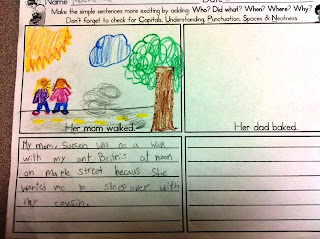 Name
Date
Make the simple sentences more exciting by adding: Who? Did what? When? Where? Why?
Don't forget to check for Capitals, Understanding, Punctuation, Spaces & Neatness.
Her mom walked.
Her dad baked.
My mom, Suesen was on a walk
with my ant at noon
on Maple street becaus She
wanted me to sleep over with
my cousin.